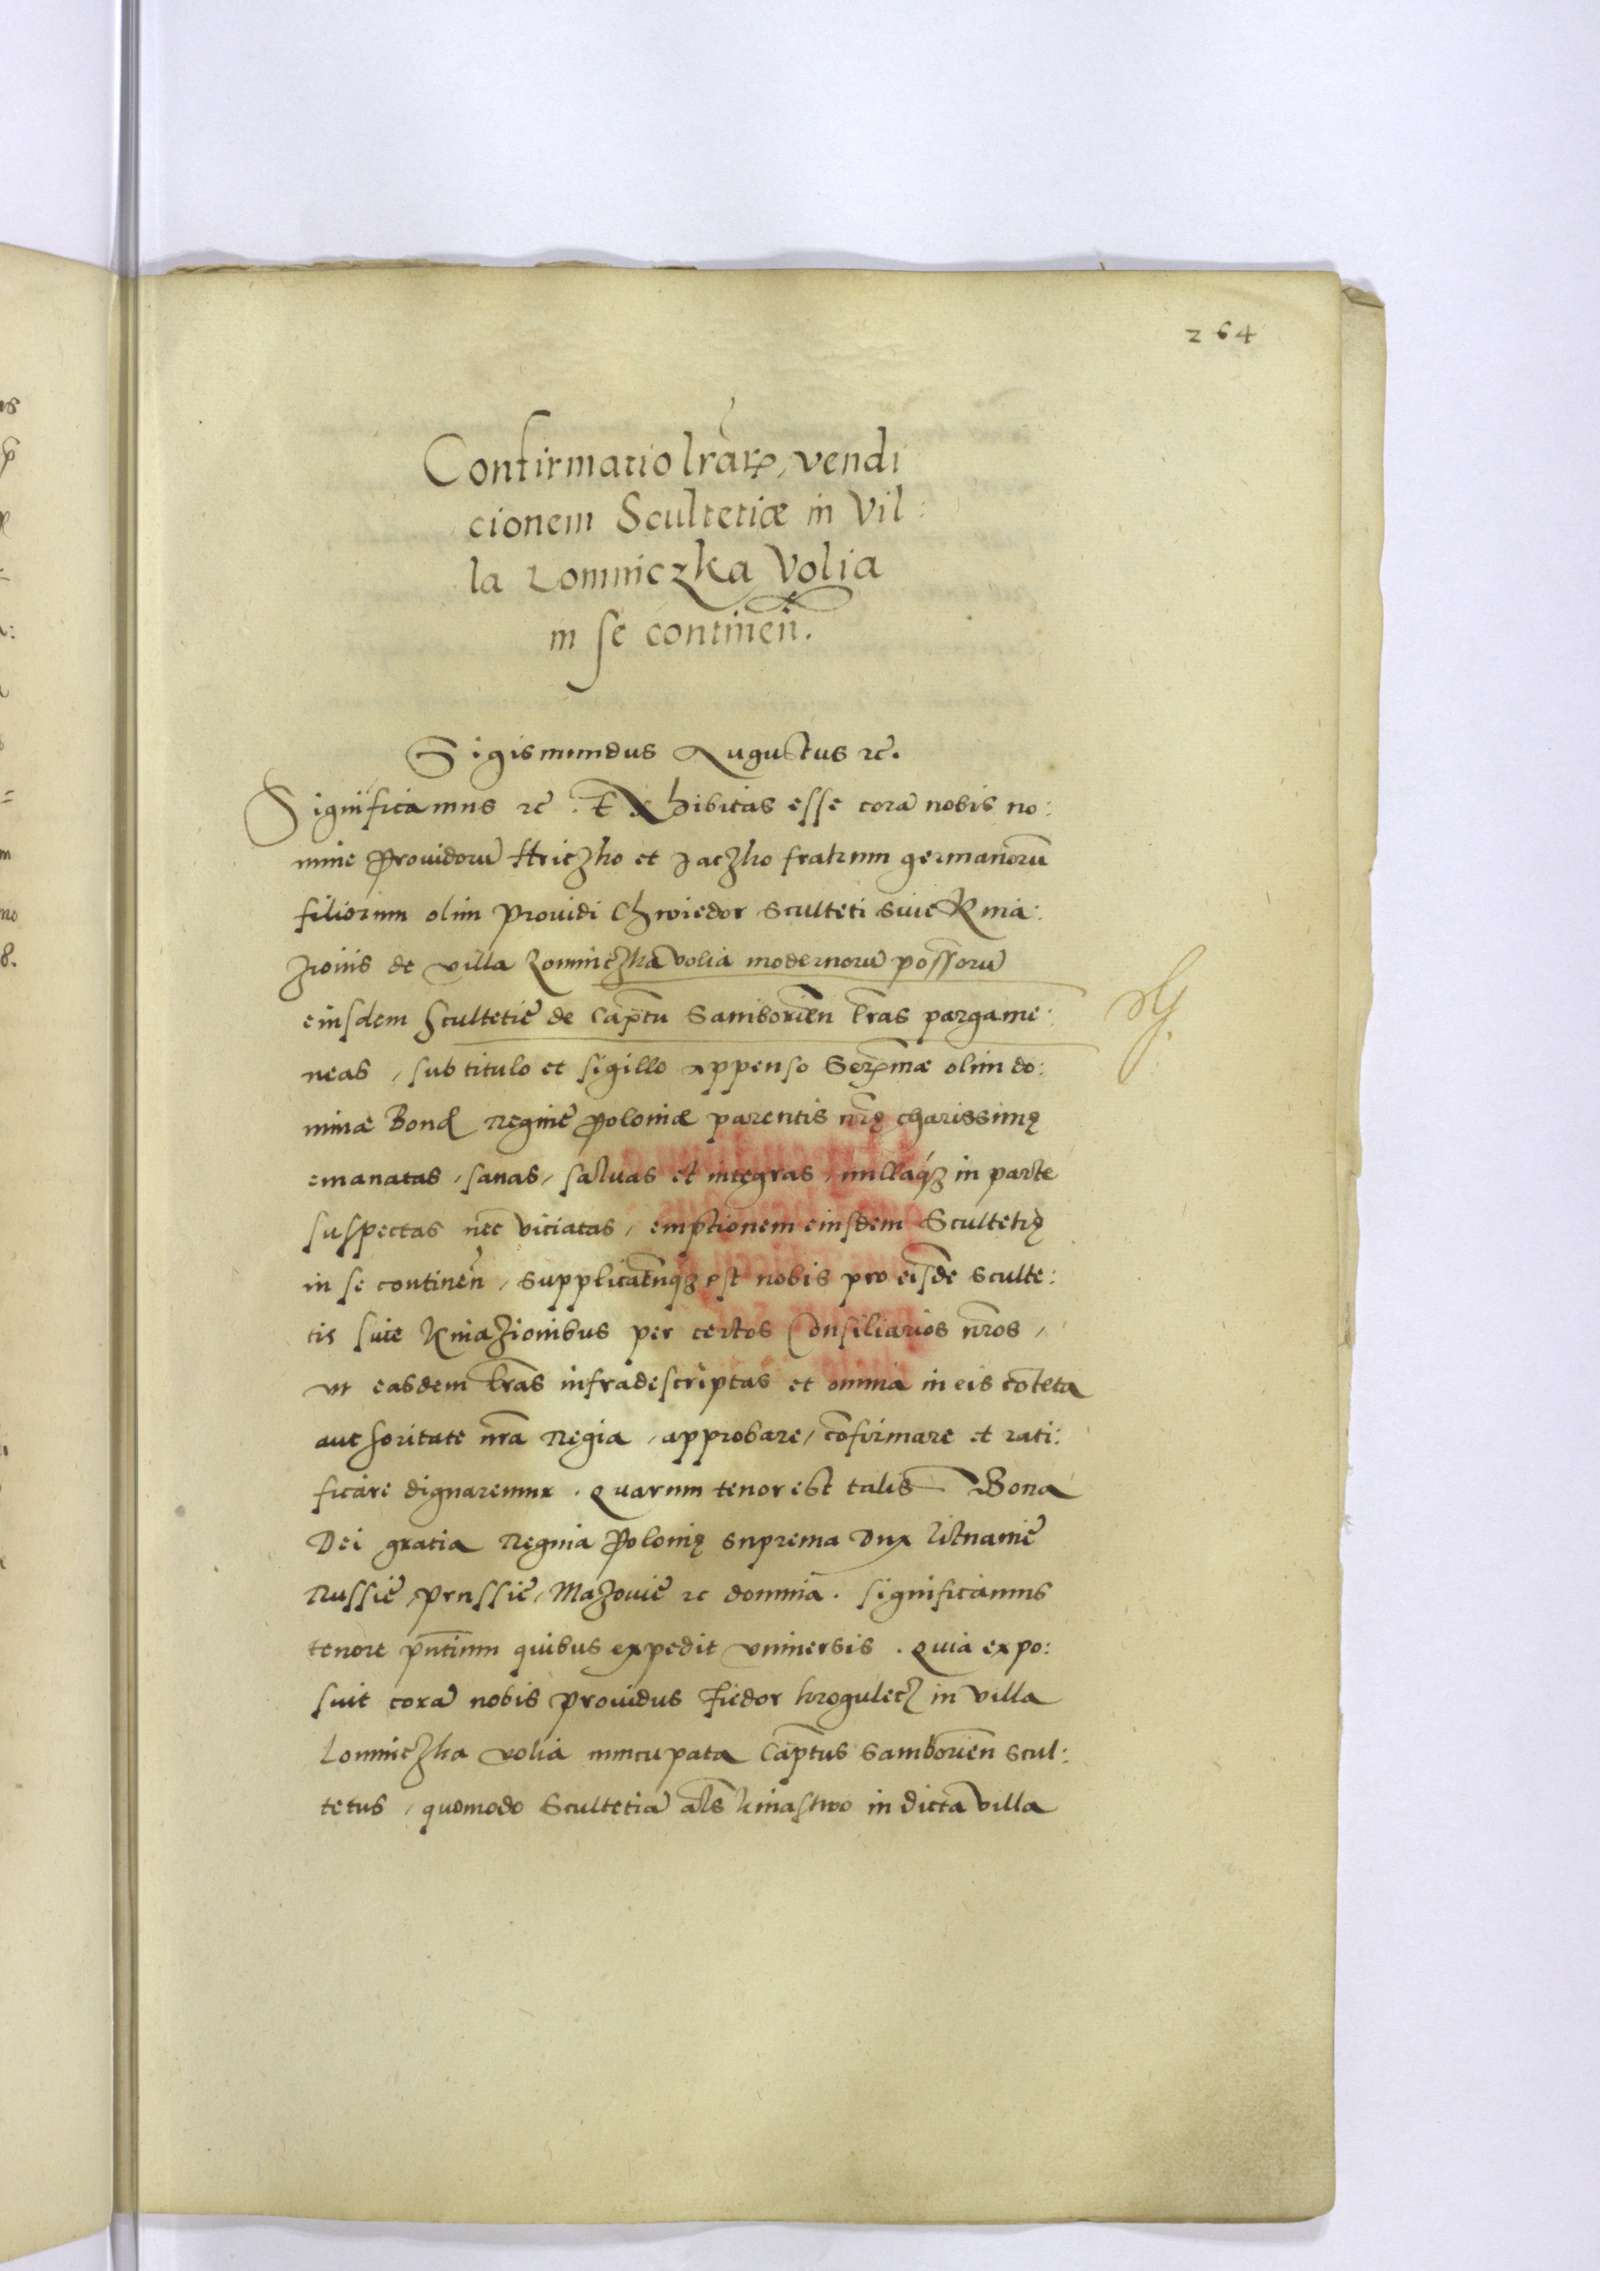 264
Confirmatio lrãrꝝ, vendi
cionem Scultetiæ in Vil:
la Lomniczka Volia
in se continen̄.
Sigismundus Augustus ⁊c̃.
Significamus ⁊c̃. Exhibitas esse corã nobis no:
mine Prouidorũ Hriczko et Jaczko fratrum germanorũ
filiorum olim prouidi Chwiedor Sculteti siue Knia:
zionis de villa Lomniczka volia modernorũ possorũ
eiusdem Scultetiẽ de Cap̃tu Samborien̄ lr̃as pargame:
neas, sub titulo et sigillo appenso Serꝝmæ olim do:
minæ Bonæ Reginẽ Poloniæ parentis nr̃ę charissimę
emanatas, sanas, saluas et integras, nullaqꝫ in parte
suspectas nec viciatas, emptionem eiusdem Scultetię
in se continen̄, supplicatũqꝫ est nobis pro eisdẽ Sculte:
tis siue Kniazionibus per certos Consiliarios nr̃os,
vt easdem lr̃as infradescriptas et omnia in eis cõteta
authoritate nr̃a Regia, approbare, cõfirmare et rati:
ficare dignaremur. Quarum tenor est talis Bona
Dei gratia Regina Polonię suprema Dux Litnaniẽ
Russiẽ, Prussiẽ, Mazouiẽ ⁊c dominã. Significamus
tenore pñtium quibus expedit vniuersis. Quia expo:
suit corã nobis prouidus Fiedor krogulecz in villa
Lomniczka volia nuncupata Cap̃tus Samborien̄ Scul:
tetus, quomodo Scultetiã al̃s kniastwo in dicta villa